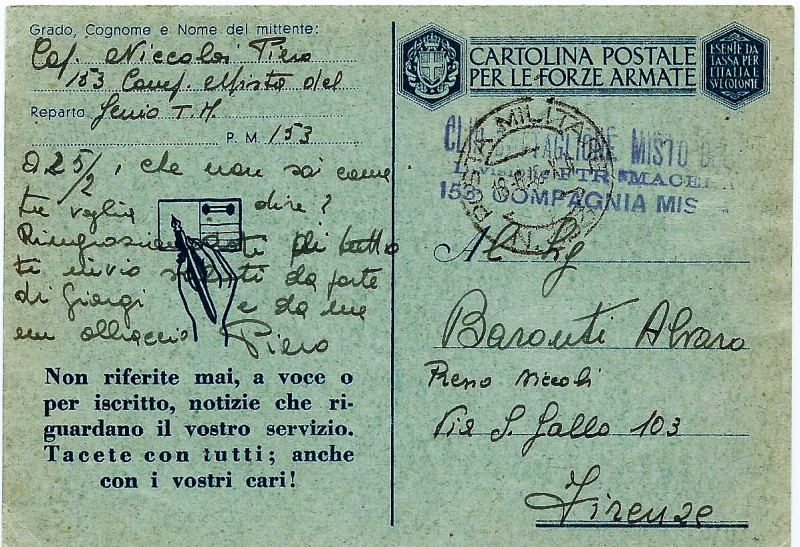 Grado, Cognome e Nome del mittente:
Cap. Niccolai Piero
153 Comp. Mista del
Reparto Genio T.M.
P. M. 153
a 25/2, che non sai come
tu voglia dire?
Ringraziandoti di tutto
ti invio saluti da parte
di Giorgi e da me
un abbraccio Piero
Non riferite mai, a voce o
per iscritto, notizie che ri-
guardano il vostro servizio.
Tacete con tutti; anche
con i vostri cari!
CARTOLINA POSTALE
PER LE FORZE ARMATE
ESENTE DA
TASSA PER
L'ITALIA E
SUE COLONIE
POSTA MILITARE
MISTO
153 COMPAGNIA MIS
Al Sig
Baronti Alvaro
Preso Niccoli
Via S. Gallo 103
Firenze